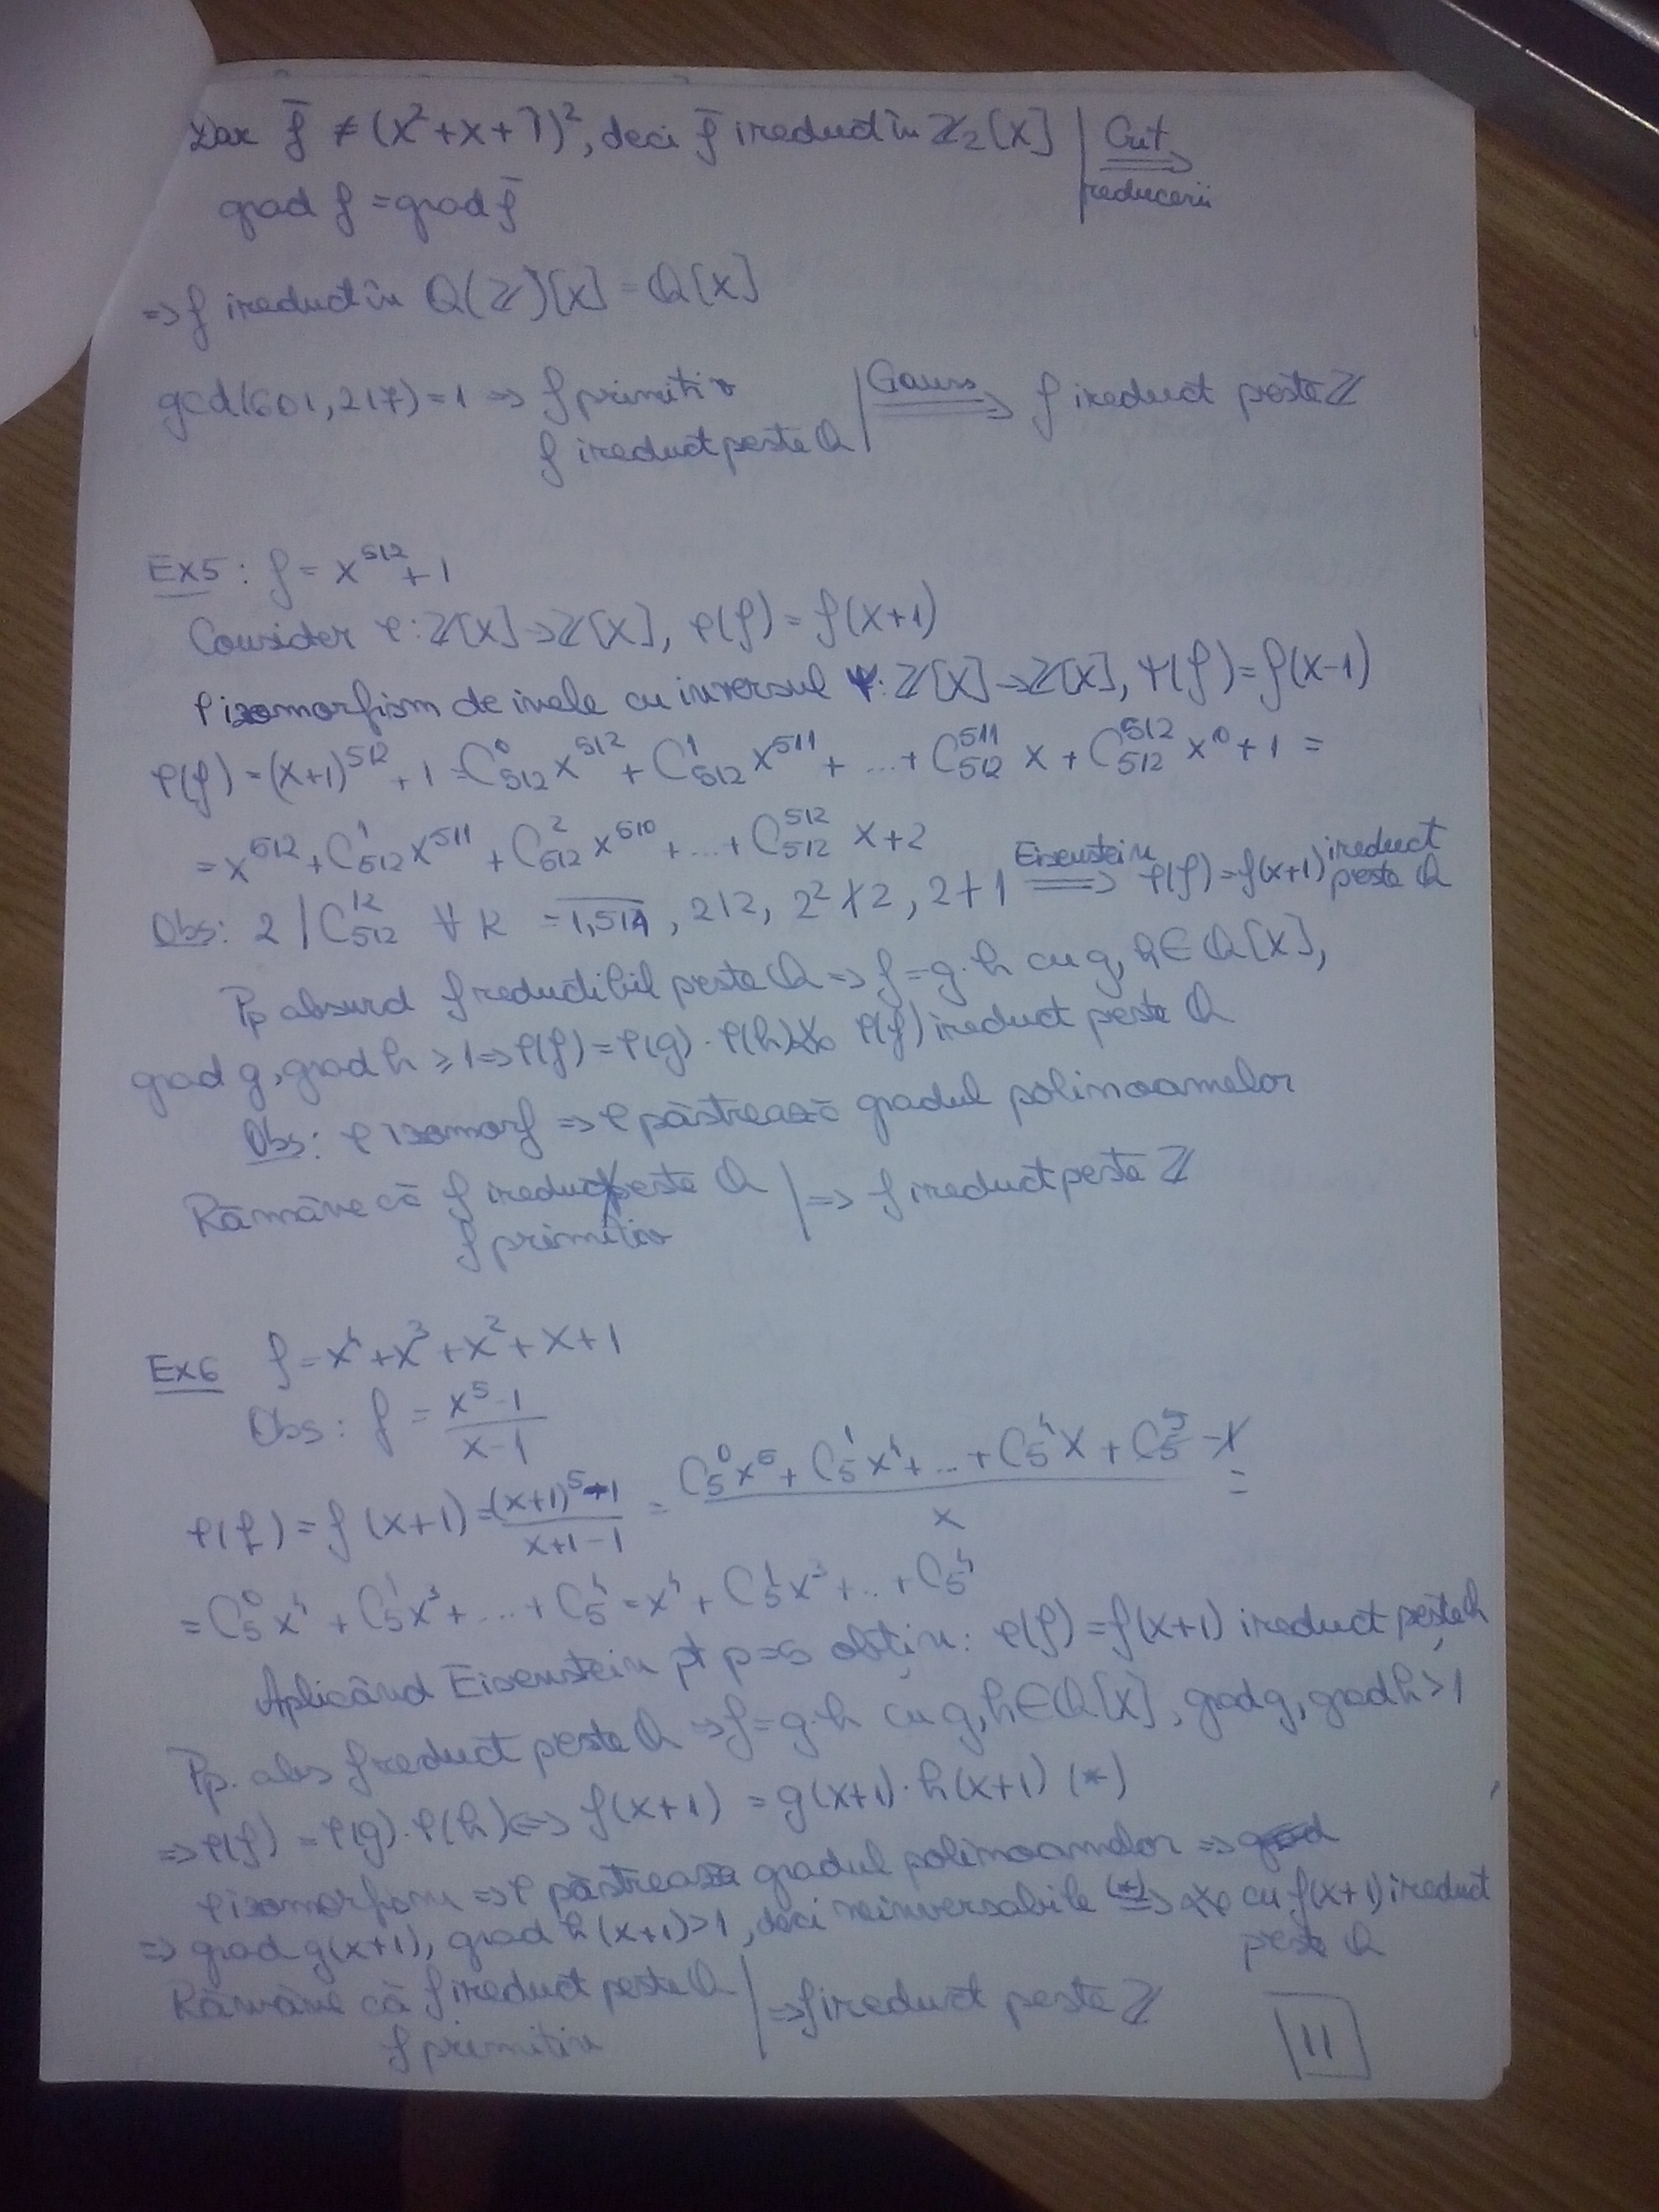 Dar f̄ ≠ (x²+x+1̄)², deci f̄ ireduct în ℤ₂[X] | Crit. reducerii ⟹
grad f = grad f̄
⇒ f ireduct în Q(ℤ)[X] = ℚ[X]
gcd(601, 217) = 1 ⇒ f primitiv | Gauss ⟹ f ireduct peste ℤ
f ireduct peste ℚ
Ex5: f = x⁵¹² + 1
Consider φ: ℤ[X] → ℤ[X], φ(f) = f(x+1)
φ izomorfism de inele cu inversul ψ: ℤ[X] → ℤ[X], ψ(f) = f(x-1)
φ(f) = (x+1)⁵¹² + 1 = C₅₁₂⁰ x⁵¹² + C₅₁₂¹ x⁵¹¹ + ... + C₅₁₂⁵¹¹ x + C₅₁₂⁵¹² x⁰ + 1 =
= x⁵¹² + C₅₁₂¹ x⁵¹¹ + C₅₁₂² x⁵¹⁰ + ... + C₅₁₂⁵¹² x + 2
Obs: 2 | C₅₁₂ᵏ ∀ k = 1,511, 2|2, 2² ∤ 2, 2 ∤ 1 Eisenstein ⟹ φ(f) = f(x+1) ireduct peste ℚ
Pp absurd f reductibil peste ℚ ⇒ f = g·h cu g, h ∈ ℚ[X],
grad g, grad h ≥ 1 ⇒ φ(f) = φ(g) · φ(h) φ(f) ireduct peste ℚ
Obs: φ izomorf ⇒ φ păstrează gradul polinoamelor
Rămâne că f ireduct peste ℚ | ⇒ f ireduct peste ℤ
f primitiv
Ex6 f = x⁴ + x³ + x² + x + 1
Obs: f = (x⁵-1)/(x-1)
φ(f) = f(x+1) = ((x+1)⁵-1)/(x+1-1) = (C₅⁰ x⁵ + C₅¹ x⁴ + ... + C₅⁴ x + C₅⁵ - 1)/x =
= C₅⁰ x⁴ + C₅¹ x³ + ... + C₅⁴ = x⁴ + C₅¹ x³ + ... + C₅⁴
Aplicând Eisenstein pt p=5 obțin: φ(f) = f(x+1) ireduct peste ℚ
Pp. abs f reduct peste ℚ ⇒ f = g·h cu g, h ∈ ℚ[X], grad g, grad h > 1
⇒ φ(f) = φ(g)·φ(h) ⇔ f(x+1) = g(x+1)·h(x+1) (*)
φ izomorfism ⇒ φ păstrează gradul polinoamelor ⇒
⇒ grad g(x+1), grad h(x+1) > 1, deci neinversabile (*) ⟹ cu f(x+1) ireduct peste ℚ
Rămâne că f ireduct peste ℚ | ⇒ f ireduct peste ℤ
f primitiv
11